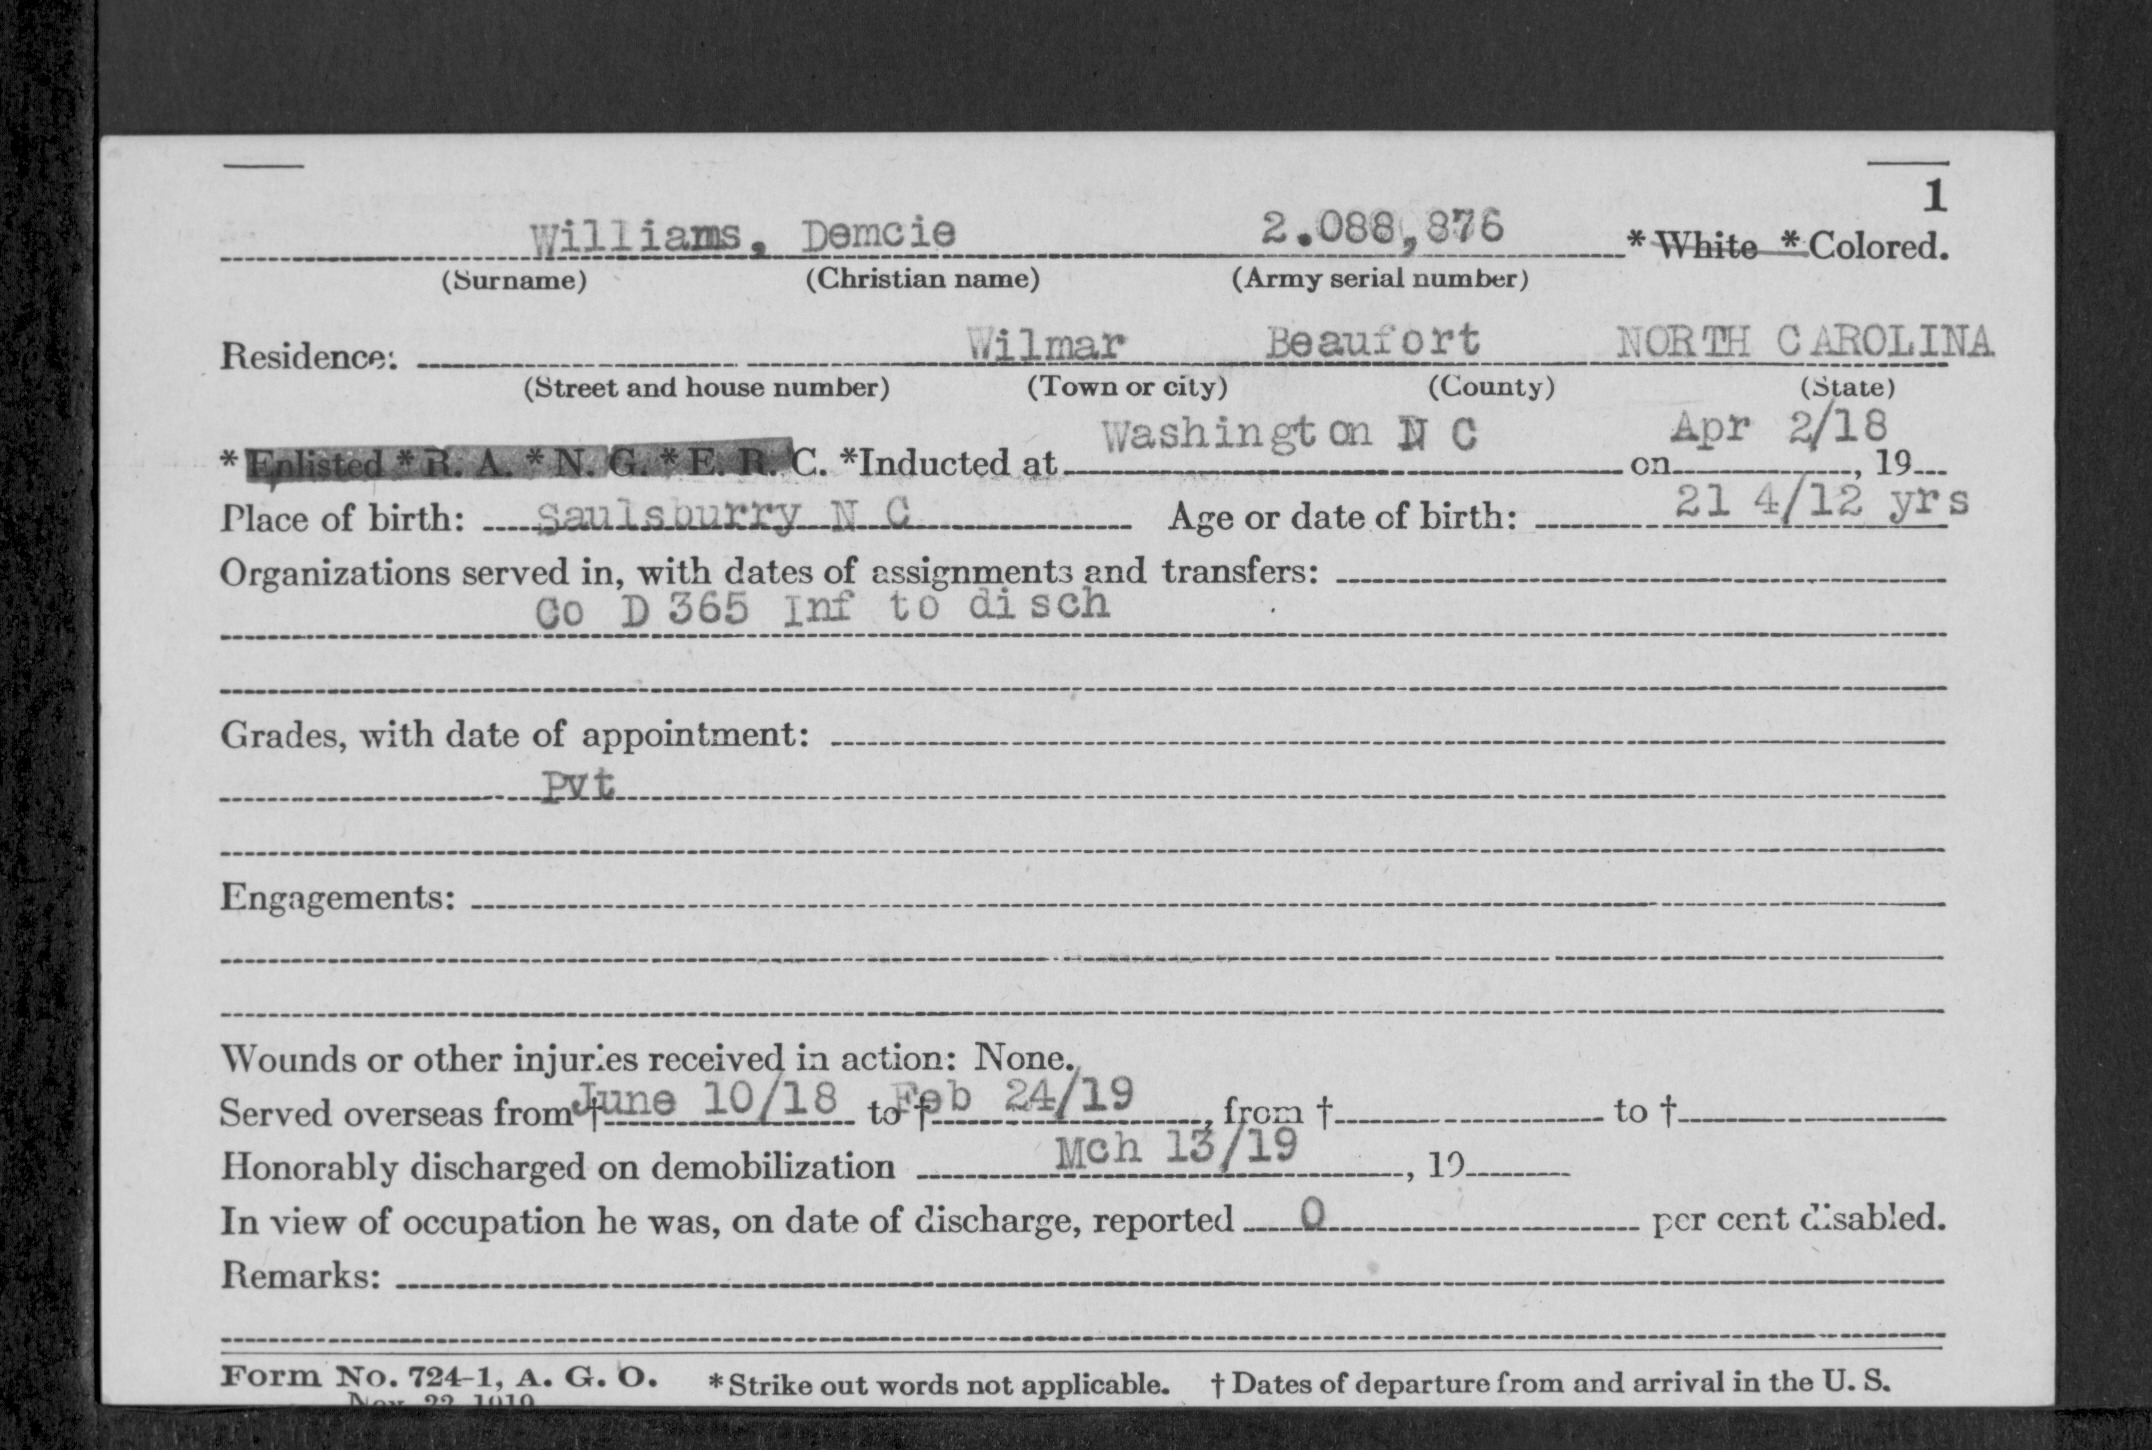 1
Williams, Demcie 2.088,876 * White * Colored.
(Surname) (Christian name) (Army serial number)
Residence: Wilmar Beaufort NORTH CAROLINA
(Street and house number) (Town or city) (County) (State)
Washington N C Apr 2/18
* Enlisted * R. A. * N. G. * E. R. C. *Inducted at on , 19
Place of birth: Saulsburry N C Age or date of birth: 21 4/12 yrs
Organizations served in, with dates of assignments and transfers:
Co D 365 Inf to disch
Grades, with date of appointment:
Pvt
Engagements:
Wounds or other injuries received in action: None.
Served overseas from † June 10/18 to † Feb 24/19 , from † to †
Honorably discharged on demobilization Mch 13/19 , 19
In view of occupation he was, on date of discharge, reported 0 per cent disabled.
Remarks:
Form No. 724-1, A. G. O. * Strike out words not applicable. † Dates of departure from and arrival in the U. S.
Nov. 22, 1919